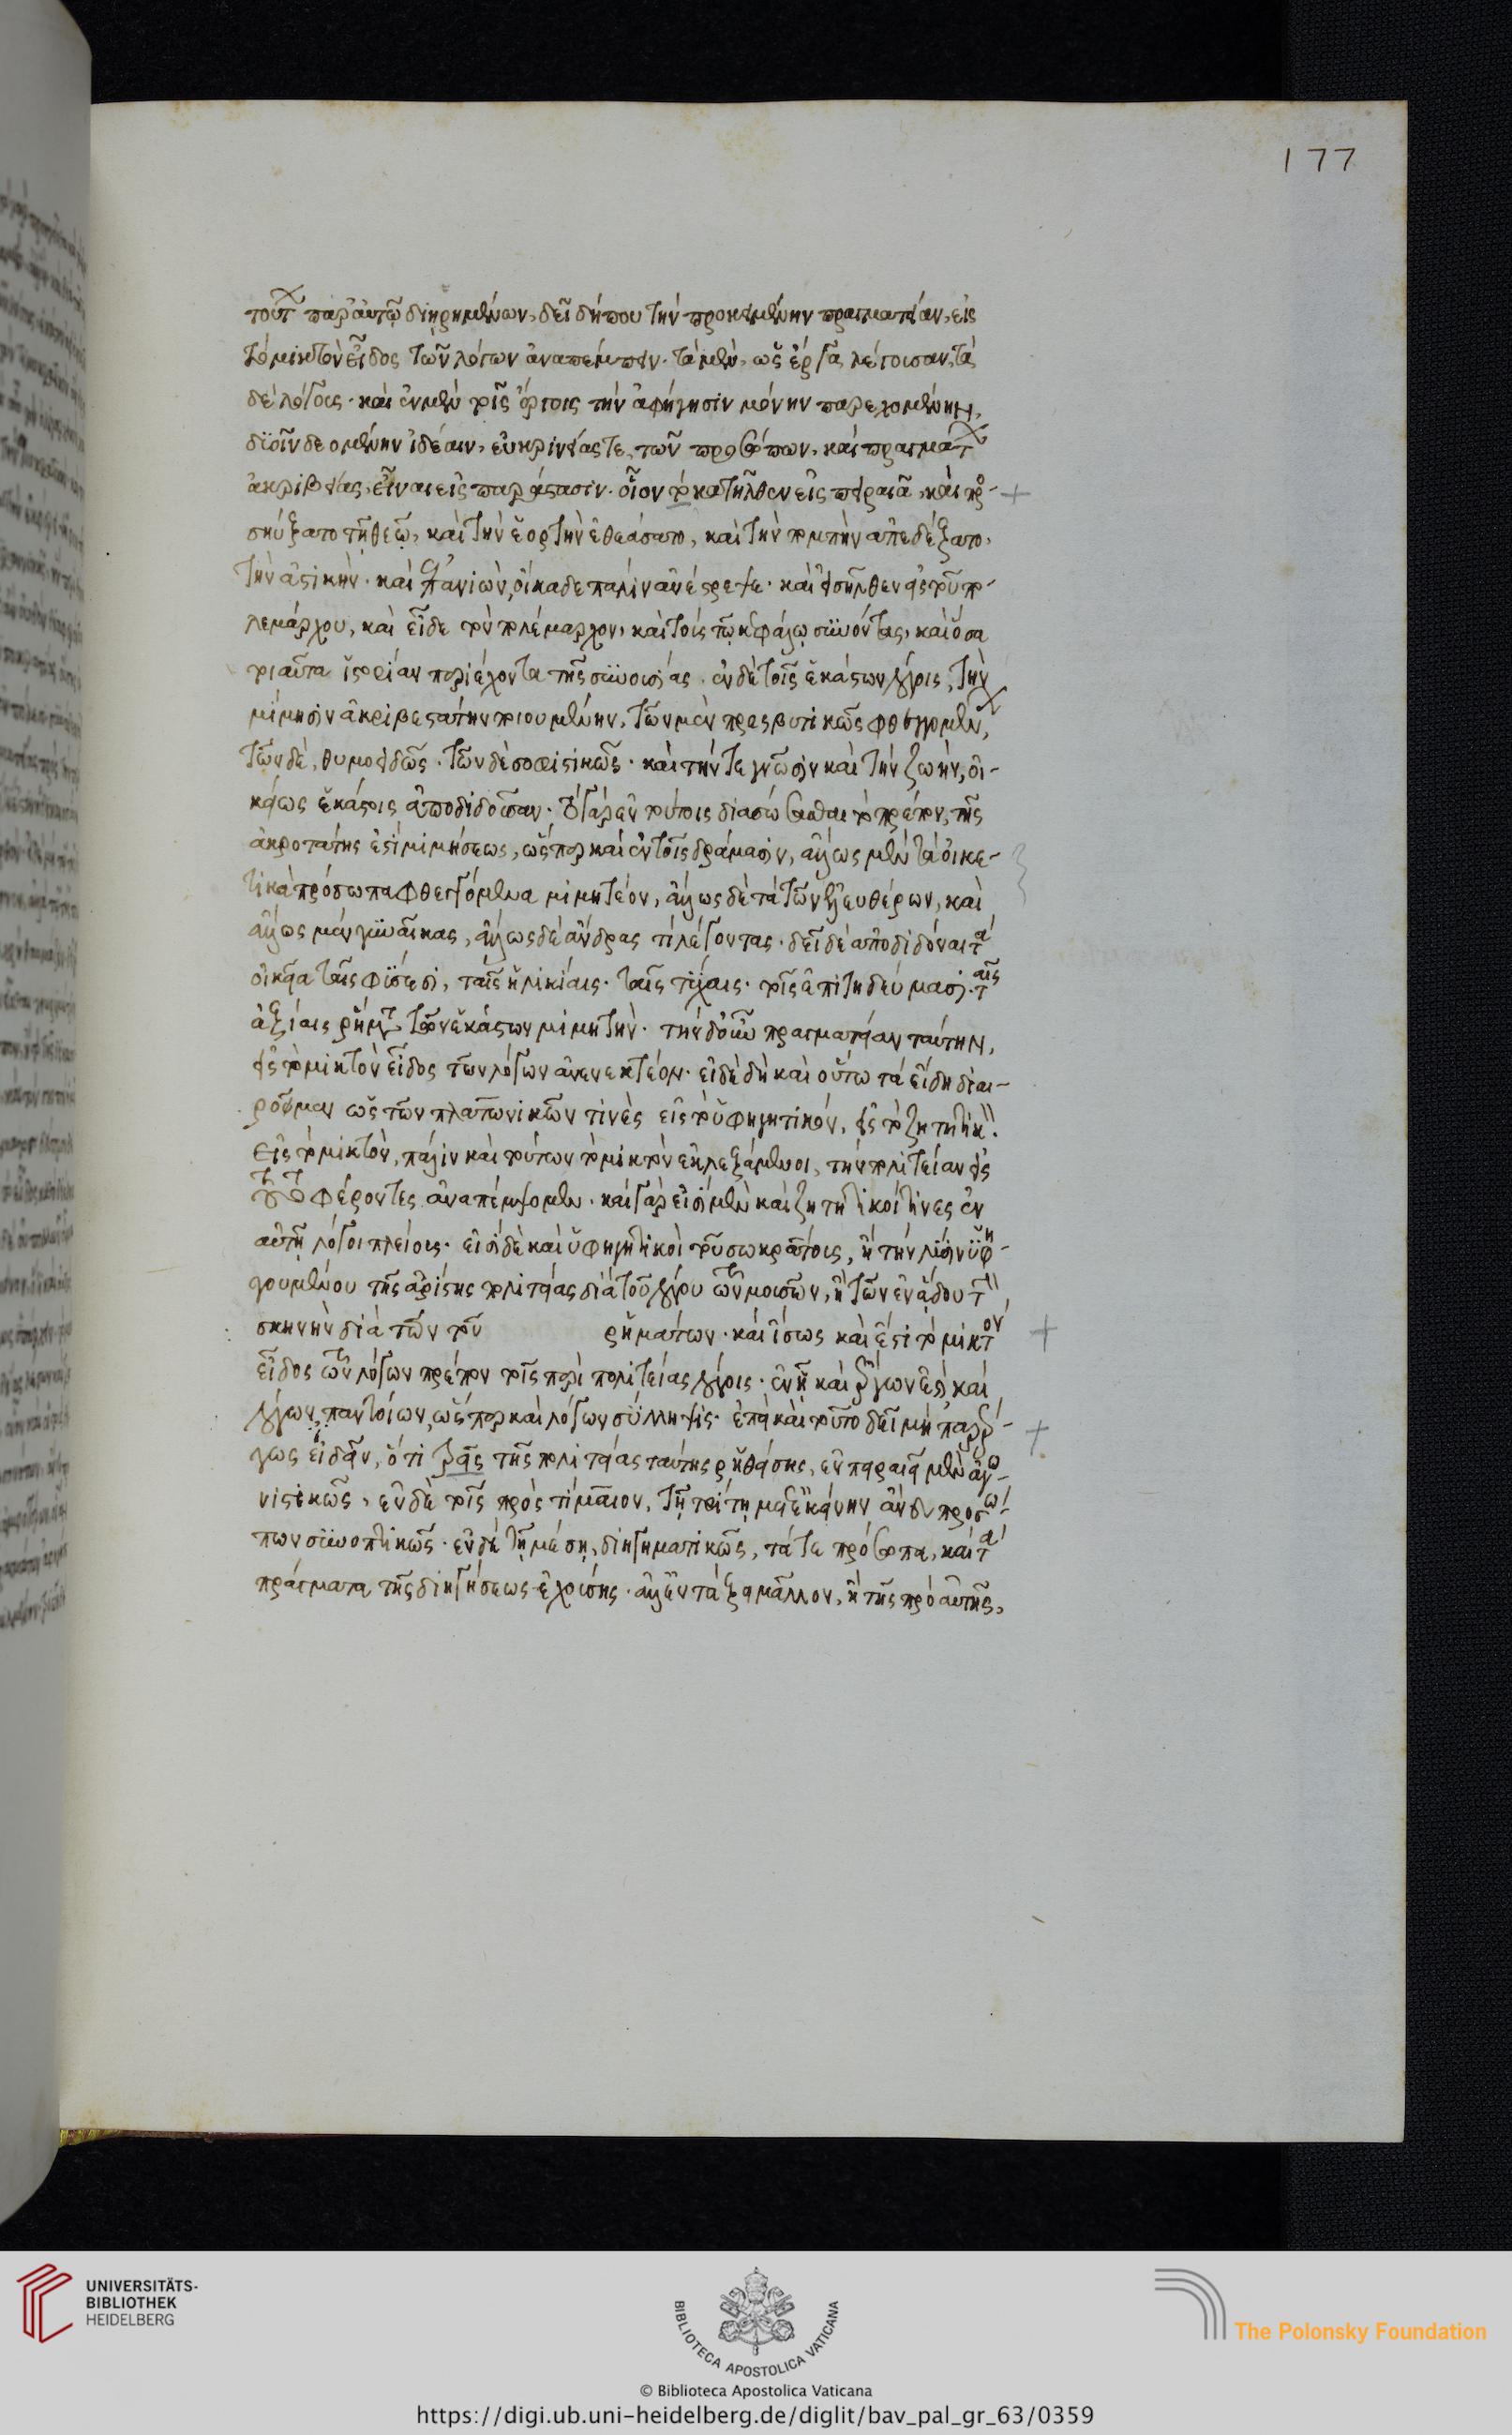 177
τούτων παρ' αὐτῷ διῃρημένων, δεῖ δήπου τὴν προκειμένην πραγματείαν, εἰς
τὸ μικτὸν εἶδος τῶν λόγων ἀναπέμπειν. τὰ μὲν, ὡς ἔργα λέγουσαν, τὰ
δὲ λόγους. καὶ ἐν μὲν τοῖς ἔργοις τὴν ἀφήγησιν μόνην παρεχομένην,
δυοῖν δεομένην ἰδέαιν, εὐκρινείας τε, τῶν προσώπων, καὶ πραγμάτων
ἀκριβείας, εἶναι εἰς παράστασιν. οἷον τὸ κατῆλθεν εἰς πειραιᾶ, καὶ προ-
σηύξατο τῇ θεῷ, καὶ τὴν ἑορτὴν ἐθεάσατο, καὶ τὴν πομπὴν ἀπεδέξατο,
τὴν ἀστικήν. καὶ ἐπανιὼν, οἴκαδε πάλιν ἀνέστρεψε. καὶ εἰσῆλθεν εἰς τοῦ πο-
λεμάρχου, καὶ εἶδε τὸν πολέμαρχον, καὶ τοὺς τῷ κεφάλῳ συνόντας, καὶ ὅσα
τοιαῦτα ἱστορίαν περιέχοντα τῆς συνουσίας. ἐν δὲ τοῖς ἑκάστων λόγοις, τὴν
μίμησιν ἀκριβεστάτην ποιουμένην, τῶν μὲν πρεσβυτικῶς φθεγγομένων,
τῶν δὲ, θυμοειδῶς. τῶν δὲ σοφιστικῶς. καὶ τήν τε γνῶσιν καὶ τὴν ζωὴν, οἰ-
κείως ἑκάστοις ἀποδιδοῦσαν. τὸ γὰρ ἐν τούτοις διασώσασθαι τὸ πρέπον, τῆς
ἀκροτάτης ἐστὶ μιμήσεως, ὥσπερ καὶ ἐν τοῖς δράμασιν, ἄλλως μὲν τὰ οἰκε-
τικὰ πρόσωπα φθεγγόμενα μιμητέον, ἄλλως δὲ τὰ τῶν ἐλευθέρων, καὶ
ἄλλως μὲν γυναῖκας, ἄλλως δὲ ἄνδρας τι λέγοντας. δεῖ δὲ ἀποδιδόναι τὰ
οἰκεῖα ταῖς φύσεσι, ταῖς ἡλικίαις. ταῖς τύχαις. τοῖς ἐπιτηδεύμασι. ταῖς
ἀξίαις ῥήματα τῶν ἑκάστων μιμητήν. τὴν δ' οὖν πραγματείαν ταύτην,
εἰς τὸ μικτὸν εἶδος τῶν λόγων ἀνενεκτέον. εἰ δὲ δὴ καὶ οὕτω τὰ εἴδη διαι-
ροῦμεν ὡς τῶν πλατωνικῶν τινὲς εἰς τὸ ὑφηγητικόν, εἰς τὸ ζητητικόν.
εἰς τὸ μικτὸν, πάλιν καὶ τούτων τὸ μικτὸν ἐκλεξάμενοι, τὴν πολιτείαν εἰς
τοῦτο φέροντες ἀναπέμψομεν. καὶ γὰρ εἰσὶ μὲν καὶ ζητητικοί τινες ἐν
αὐτῇ λόγοι πλείους. εἰσὶ δὲ καὶ ὑφηγητικοὶ τοῦ σωκράτους, ἢ τὴν λύσιν ὑφη-
γουμένου τῆς ἀρίστης πολιτείας διὰ τοῦ λόγου τῶν μουσῶν, ἢ τῶν ἐν ᾅδου τὴν
σκηνὴν διὰ τῶν τοῦ ῥημάτων. καὶ ἴσως καὶ ἔστι τὸ μικτὸν
εἶδος τῶν λόγων πρέπον τοῖς περὶ πολιτείας λόγοις. ἐν ᾗ καὶ ἔργων ἐστὶ καὶ
λόγων, παντοίων, ὥσπερ καὶ λόγων σύλληψις. ἐπεὶ καὶ τοῦτο δεῖ μὴ παρέρ-
γως εἰδεῖν, ὅτι τρεῖς τῆς πολιτείας ταύτης ῥηθείσης, ἐν πειραιεῖ μὲν ἀγω-
νιστικῶς, ἐν δὲ τοῖς πρὸς τίμαιον, τῇ τρίτῃ μετ' ἐκείνην ἄνευ προσώ-
πων συνοπτικῶς. ἐν δὲ τῇ μέσῃ, διηγηματικῶς, τά τε πρόσωπα, καὶ τὰ
πράγματα τῆς διηγήσεως ἐχούσης. ἀλλ' ἐν τάξει μᾶλλον, ἢ τῆς πρὸ αὐτῆς,
UNIVERSITÄTS-
BIBLIOTHEK
HEIDELBERG
BIBLIOTECA APOSTOLICA VATICANA
The Polonsky Foundation
© Biblioteca Apostolica Vaticana
https://digi.ub.uni-heidelberg.de/diglit/bav_pal_gr_63/0359